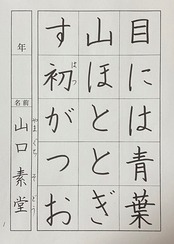 目には青葉
山ほとゝぎ
す初がつお
はつ
年
名前
山口素堂
やま ぐち そ どう